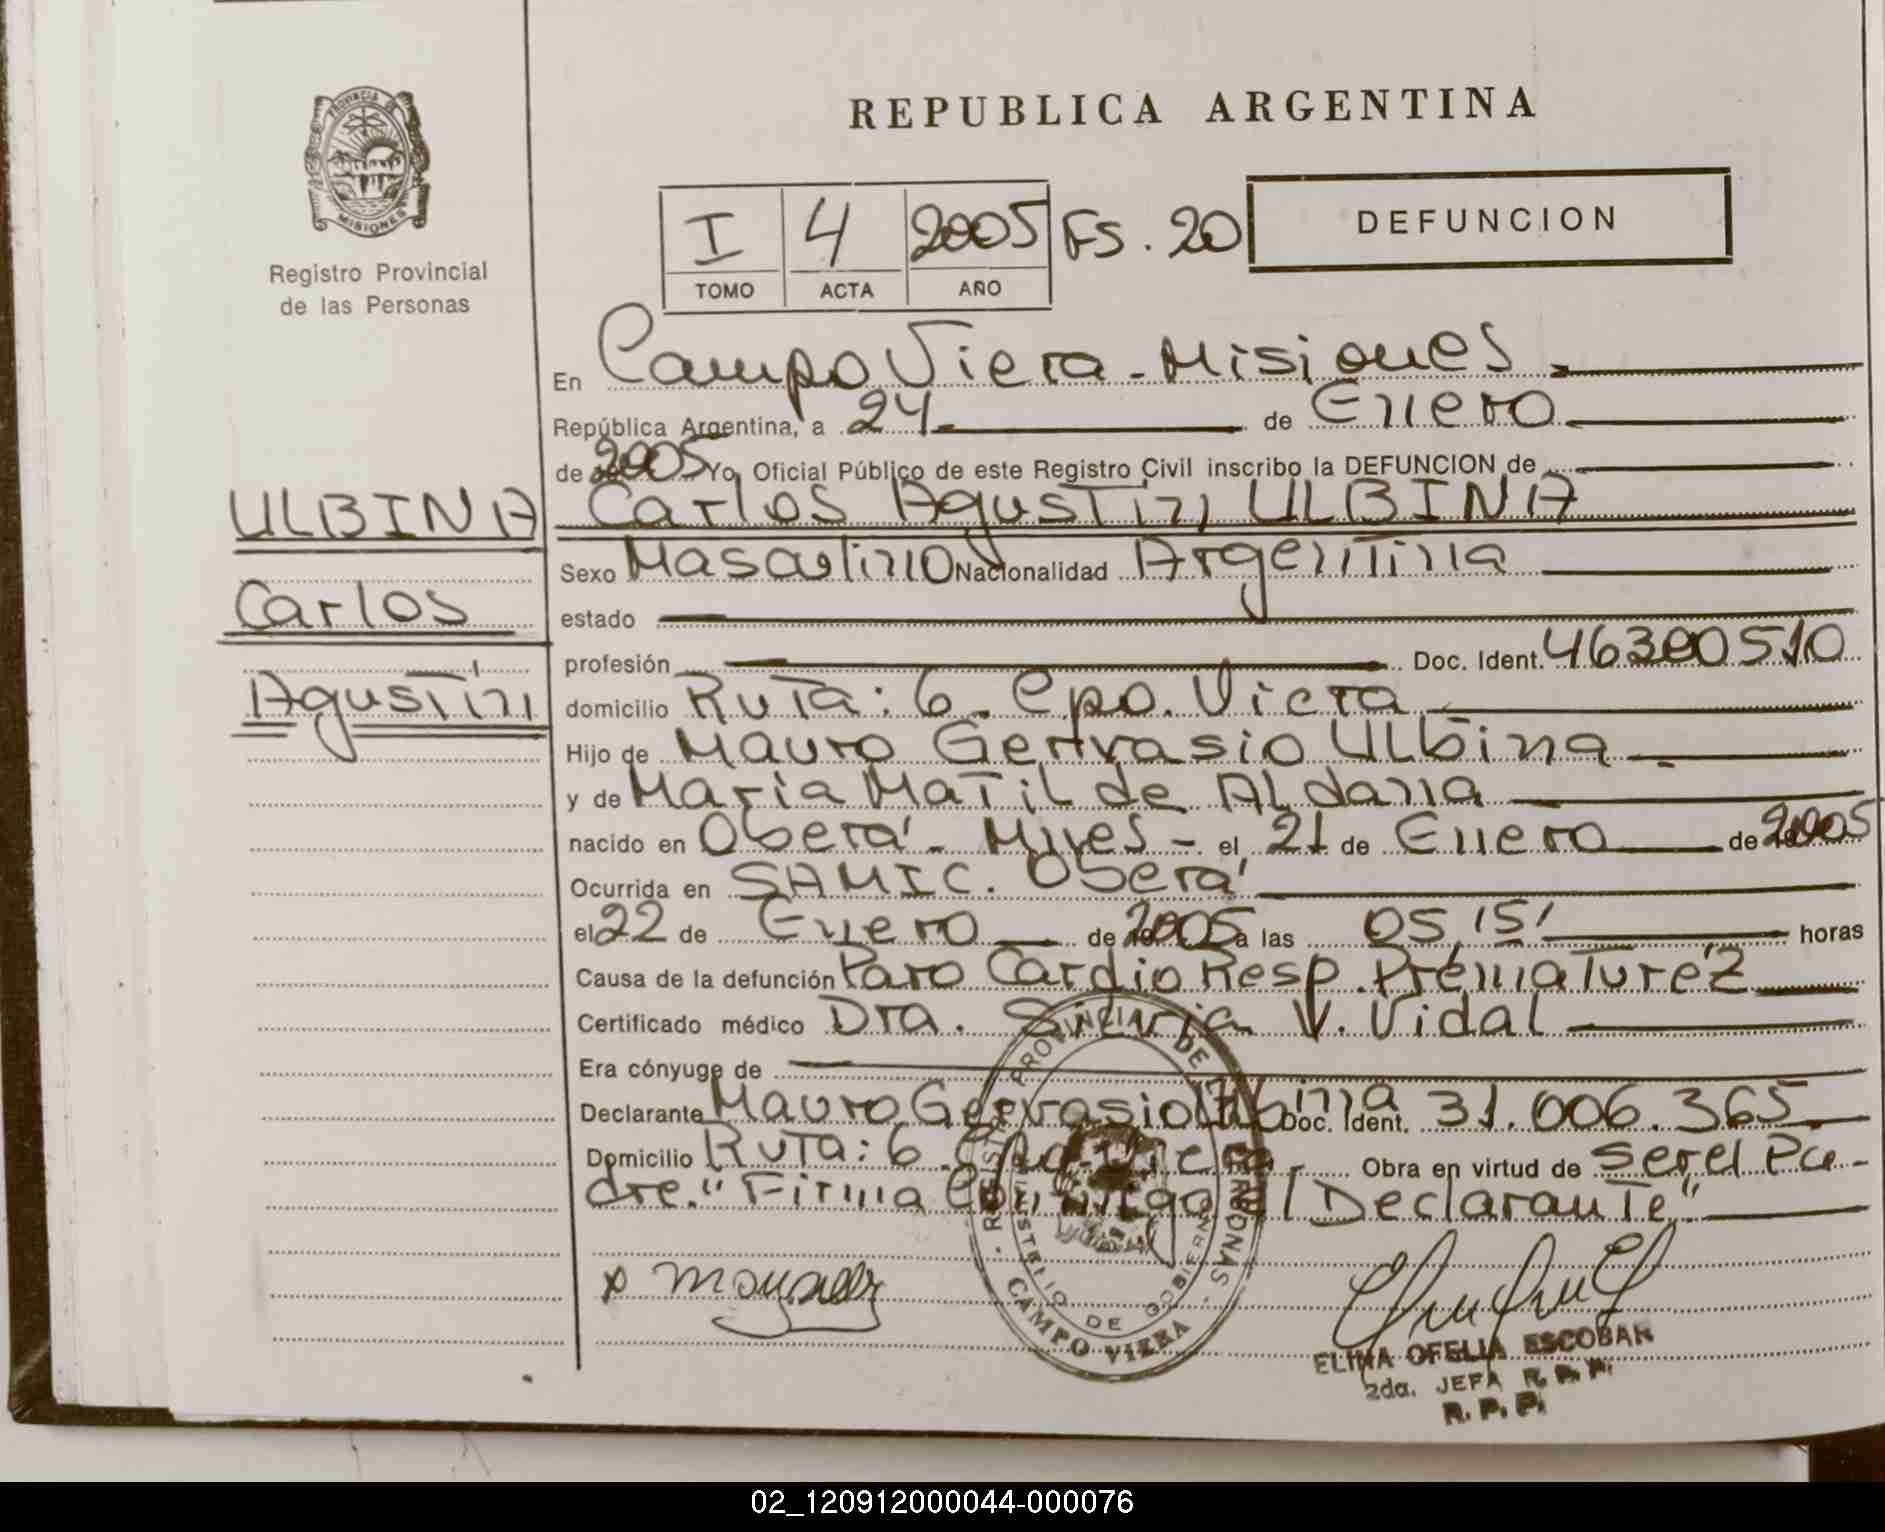 PROVINCIA DE
MISIONES
Registro Provincial
de las Personas
REPUBLICA ARGENTINA
I 4 2005 FS. 20
TOMO ACTA AÑO
DEFUNCION
En Campo Viera - Misiones
República Argentina, a 24 de Enero
de 2005 Yo, Oficial Público de este Registro Civil inscribo la DEFUNCION de
ULBINA
Carlos
Agustín
Carlos Agustín ULBINA
Sexo Masculino Nacionalidad Argentina
estado
profesión Doc. Ident. 46300510
domicilio Ruta: 6 - Cpo. Viera
Hijo de Mauro Gervasio Ulbina
y de Maria Matilde Aldana
nacido en Oberá - Mnes - el 21 de Enero de 2005
Ocurrida en SAMIC. Oberá
el 22 de Enero de 2005 a las 05,15' horas
Causa de la defunción Paro Cardio Resp. Prematuréz
Certificado médico Dra. Silvia V. Vidal
Era cónyuge de
Declarante Mauro Gervasio Ulbina Doc. Ident. 31.006.365
Domicilio Ruta: 6. Cpo. Viera Obra en virtud de ser el Pa-
dre." Firma Conmigo el Declarante"
PROVINCIA DE
MINISTERIO DE GOBIERNO
CAMPO VIERA
ELINA OFELIA ESCOBAR
2da. JEFA R. P. P.
R. P. P.
02_120912000044-000076